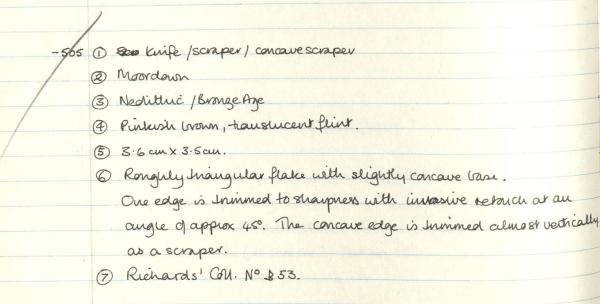 -505 ① Knife / scraper / concave scraper
② Moordown
③ Neolithic / Bronze Age
④ Pinkish brown, translucent flint.
⑤ 3.6cm x 3.5cm.
⑥ Roughly triangular flake with slightly concave base.
One edge is trimmed to sharpness with invasive retouch at an
angle of approx 45°. The concave edge is trimmed almost vertically
as a scraper.
⑦ Richards' Coll. Nº 53.